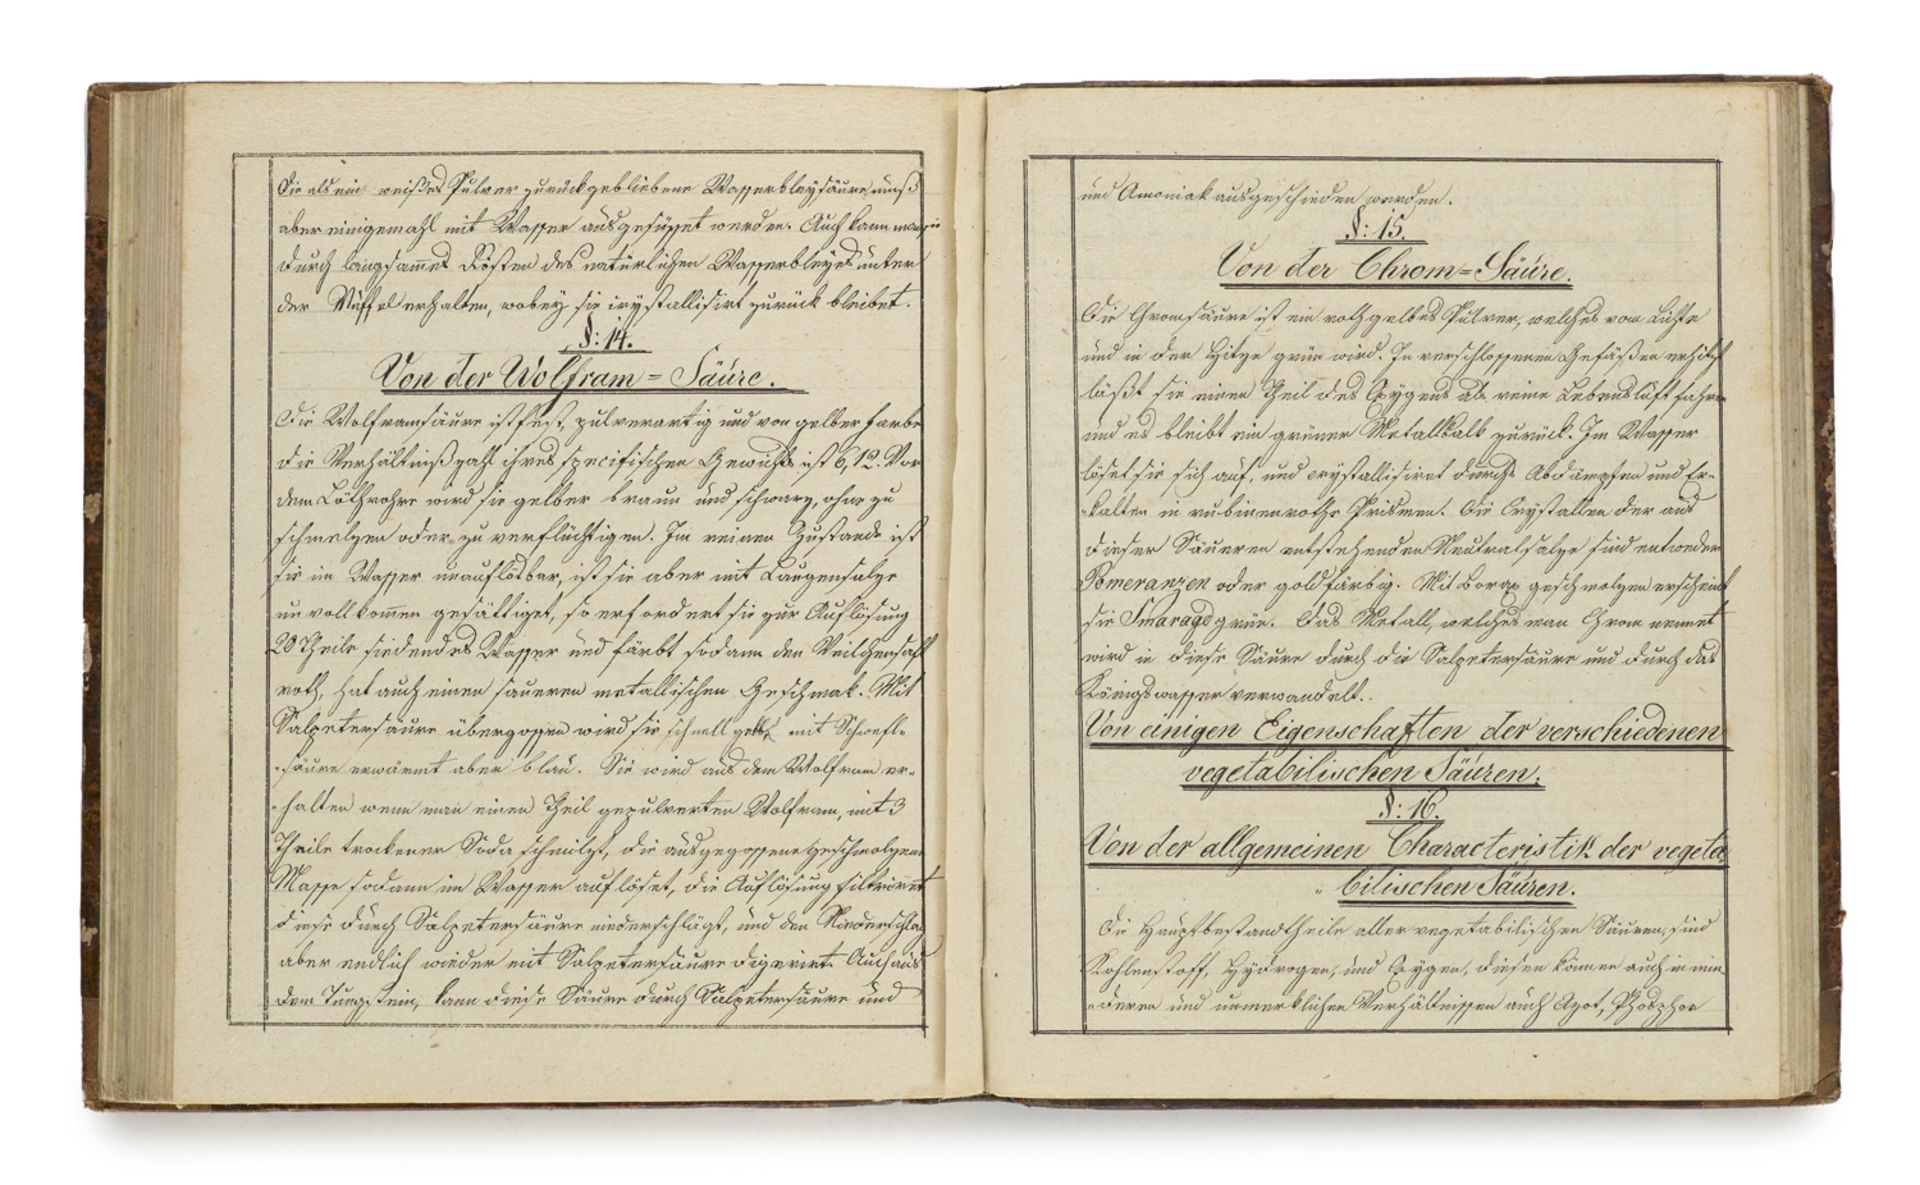 die als ein weißes Pulver zurückgebliebene Wasserbleysäure muß
aber einigemahl mit Wasser ausgesüsset werden. Auch kann man sie
durch langsammes Rösten des natürlichen Wasserbleyes unter
der Muffel erhalten, wobey sie crystallisirt zurück bleibet.
§: 14.
Von der Wolfram=Säure.
Die Wolframsäure ist fest, pulverartig und von gelber Farbe
die Verhältnißzahl ihres specifischen Gewichts ist 6,12. Vor
dem Löthrohre wird sie gelber braun und schwarz, ohne zu
schmelzen oder zu verflüchtigen. Im reinen Zustande ist
sie im Wasser unauflösbar, ist sie aber mit Laugensalze
unvollkommen gesättiget, so erfordert sie zur Auflösung
20 Theile siedendes Wasser und färbt sodann den Veilchensaft
roth, hat auch einen saueren metallischen Geschmak. Mit
Salpetersäure übergossen wird sie schnell gelb, mit Schwefl=
=säure erwärmt aber blau. Sie wird aus dem Wolfram er=
=halten wenn man einen Theil gepulverten Wolfram, mit 3
Theile trockener Soda schmilzt, die ausgegossene geschmolzene
Masse sodann im Wasser auflöset, die Auflösung filtriret
diese durch Salpetersäure niederschlägt, und den Niederschlag
aber endlich wieder mit Salpetersäure digerirt. Auch aus
dem Tungstein, kann diese Säure durch Salpetersäure und
und Amoniak ausgeschieden werden.
§: 15.
Von der Chrom=Säure.
Die Chromsäure ist ein rothgelbes Pulver, welches vom Lichte
und in der Hitze grün wird. In verschlossenen Gefäßen erhitzt
läßt sie einen Theil des Oxygens als reine Lebensluft fahren
und es bleibt ein grüner Metallkalk zurück. Im Wasser
löset sie sich auf, und crystallisiret durchs Abdampfen und Er=
=kalten in rubinenrothe Prismen. Die Crystallen der aus
dieser Säueren entstehenden Neutralsalze sind entweder
Pomeranzen oder goldfärbig. Mit Borax geschmolzen erscheint
sie Smaragdgrün. Das Metall, welches man Chrom nennet
wird in diese Säure durch die Salpetersäure und durch das
Königswasser verwandelt..
Von einigen Eigenschaften der verschiedenen
vegetabilischen Säuren.
§: 16.
Von der allgemeinen Characteristik der vegeta
=bilischen Säuren.
Die Hauptbestandtheile aller vegetabilischen Säuren, sind
Kohlenstoff, Hydrogen, und Oxygen, diesen können auch in min
=deren und unmerklichen Verhältnissen auch Azot, Phosphor